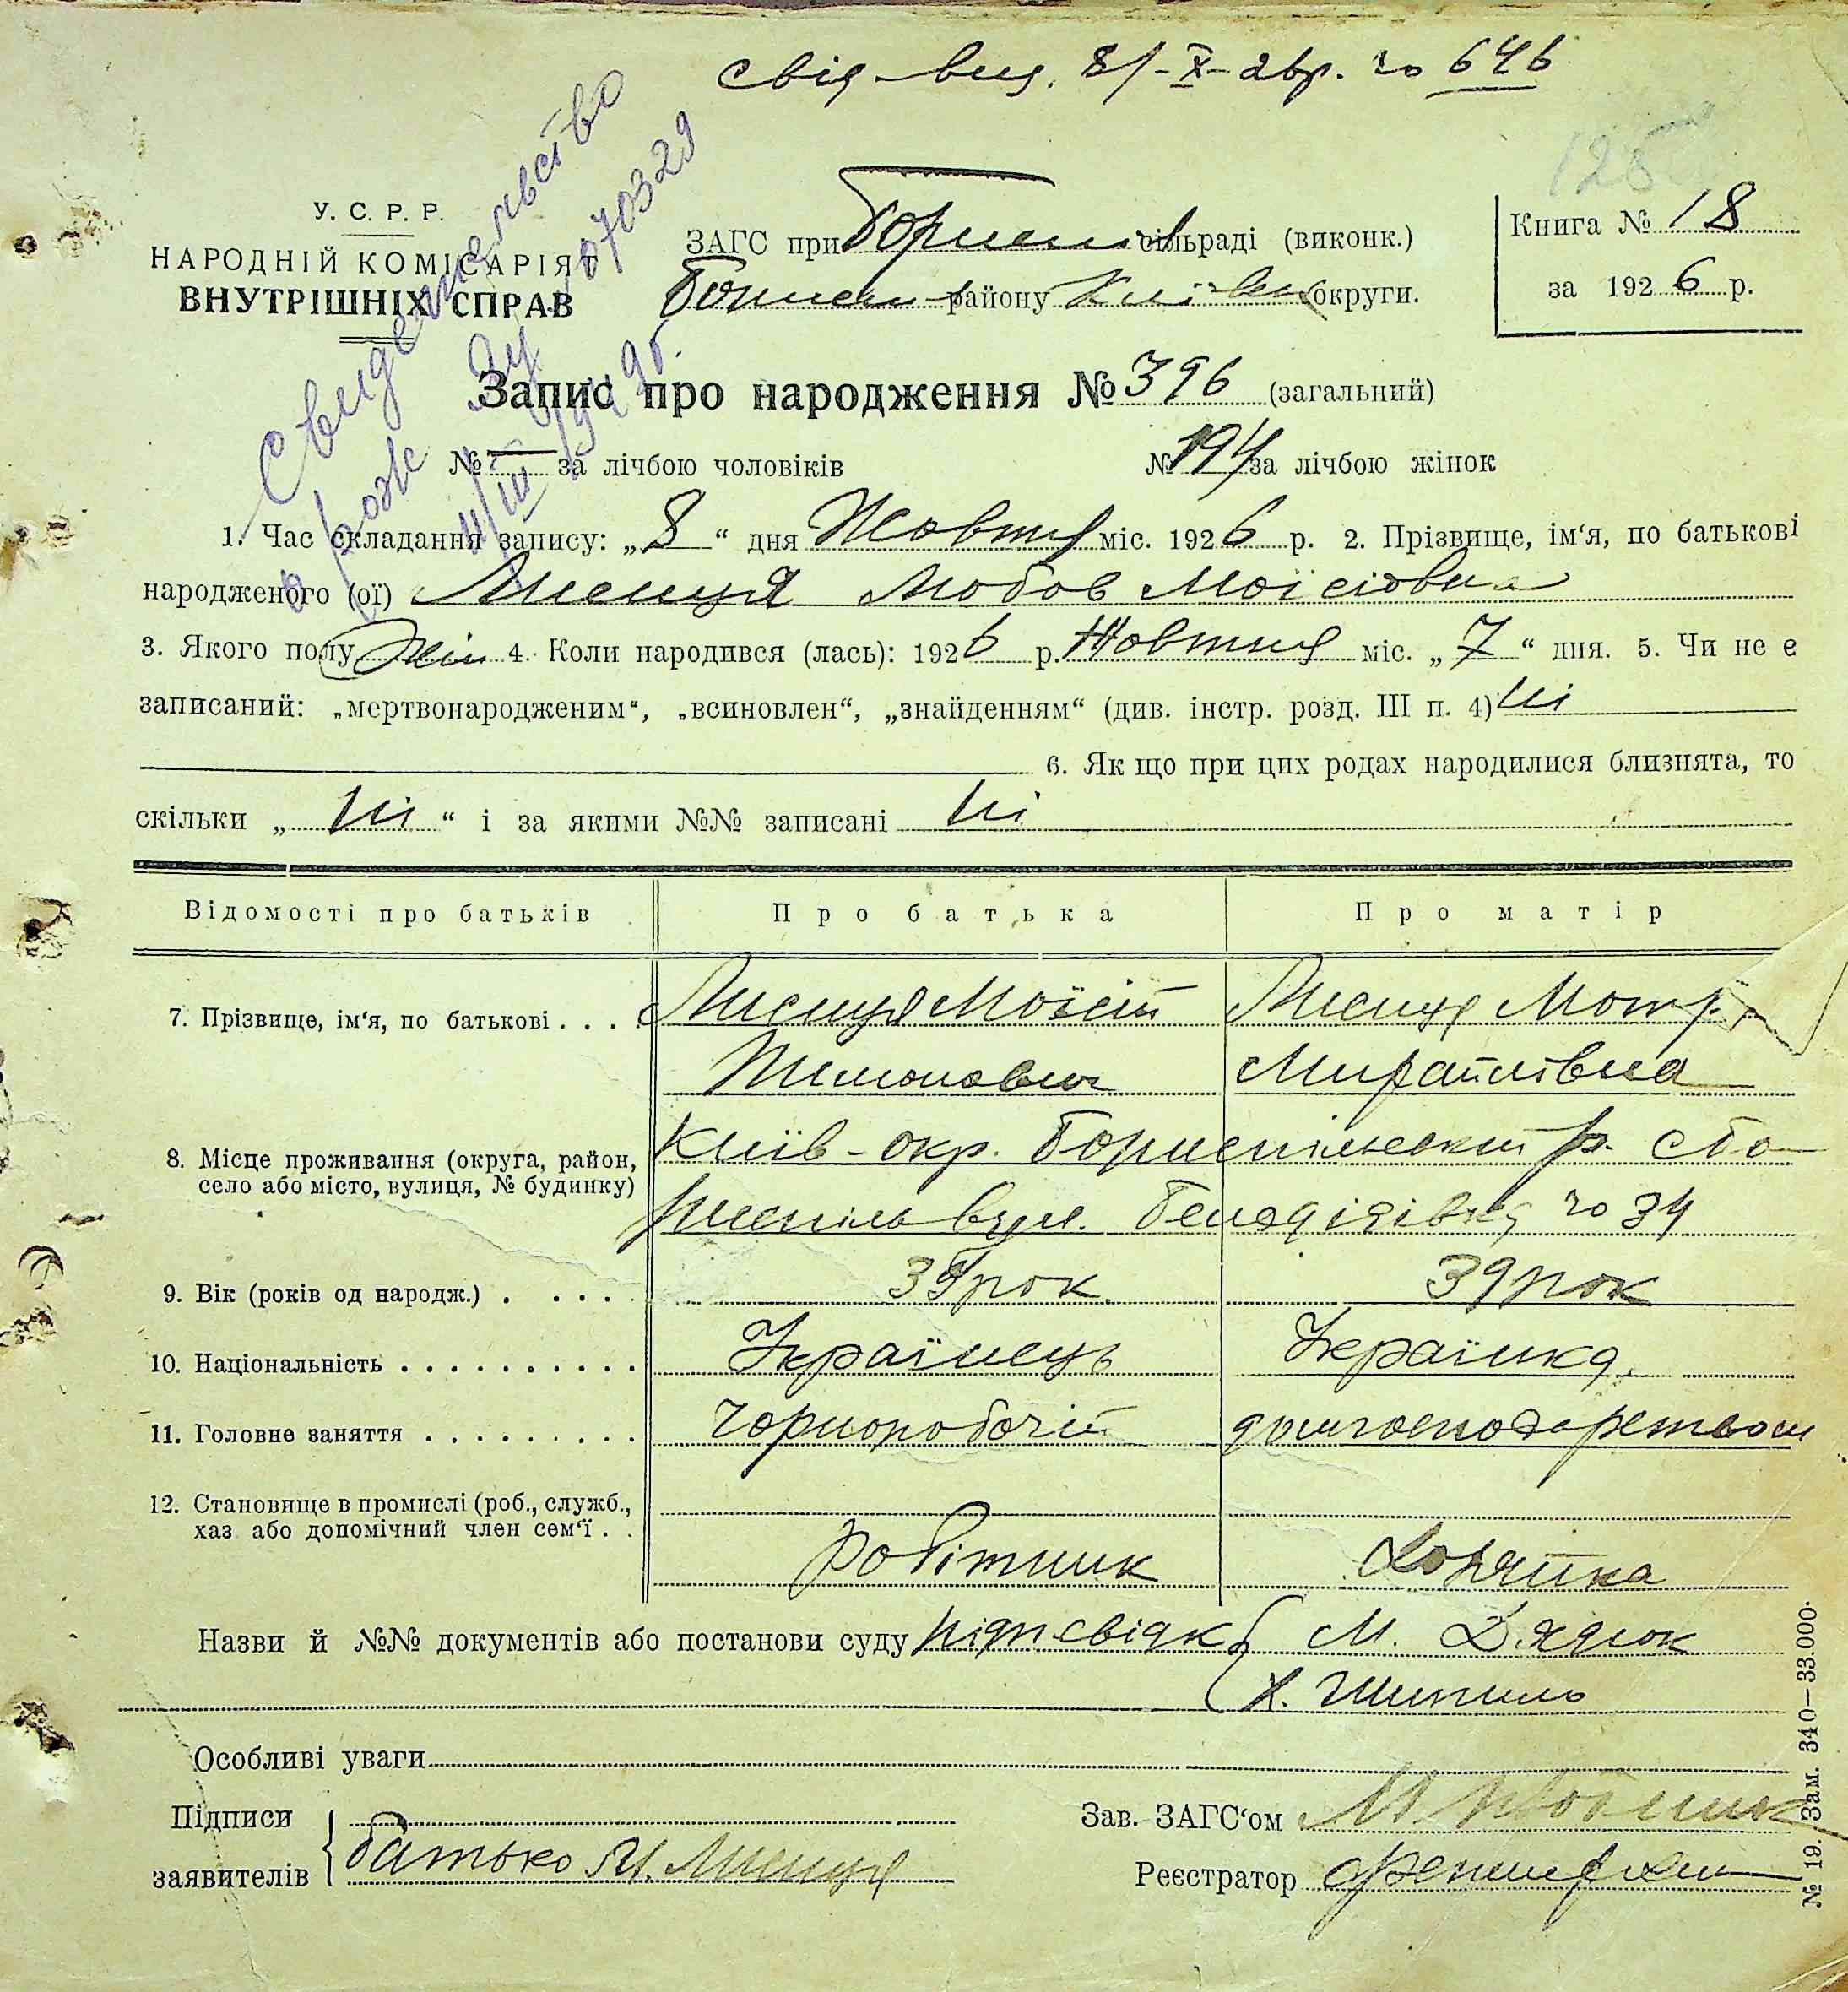 свід. вид. 8/-X-26р. № 646
125
Свидетельство
о рож
070329
У. С. Р. Р.
НАРОДНІЙ КОМІСАРІЯТ
ВНУТРІШНІХ СПРАВ
ЗАГС при Борисп сільраді (виконк.)
Борисп району Київськ округи.
Книга № 18
за 1926 р.
Запис про народження № 396 (загальний)
№ — за лічбою чоловіків № 194 за лічбою жінок
1. Час складання запису: „8“ дня Жовтня міс. 1926 р. 2. Прізвище, ім‘я, по батькові
народженого (ої) Лисиця Любов Моісіовна
3. Якого полу жін 4. Коли народився (лась): 1926 р. Жовтня міс. „7“ дня. 5. Чи не є
записаний: „мертвонародженим“, „всиновлен“, „знайденням“ (див. інстр. розд. III п. 4) ні
6. Як що при цих родах народилися близнята, то
скільки „ ні “ і за якими №№ записані ні
Відомості про батьків Про батька Про матір
7. Прізвище, ім‘я, по батькові . . . . Лисиця Моїсій Лисиця Мотр
Тимонович Михайлівна
8. Місце проживання (округа, район, село або місто, вулиця, № будинку) Київ-окр. Бориспільський р. с Бо-
риспіль вул. № 34
9. Вік (років од народж.) . . . . . 39 рок. 39 рок
10. Національність . . . . . . . . . . Українець Українка
11. Головне заняття . . . . . . . . . Чорноробочій домгосподарством
12. Становище в промислі (роб., служб.,
хаз або допомічний член сем‘ї . .
робітник Хозяйка
Назви й №№ документів або постанови суду підп свідків М. Дядюк
Х. Шипиль
Особливі уваги
Підписи
заявителів батько М. Лисиця
Зав. ЗАГС‘ом
Реєстратор
№ 19. Зам. 340—33.000.